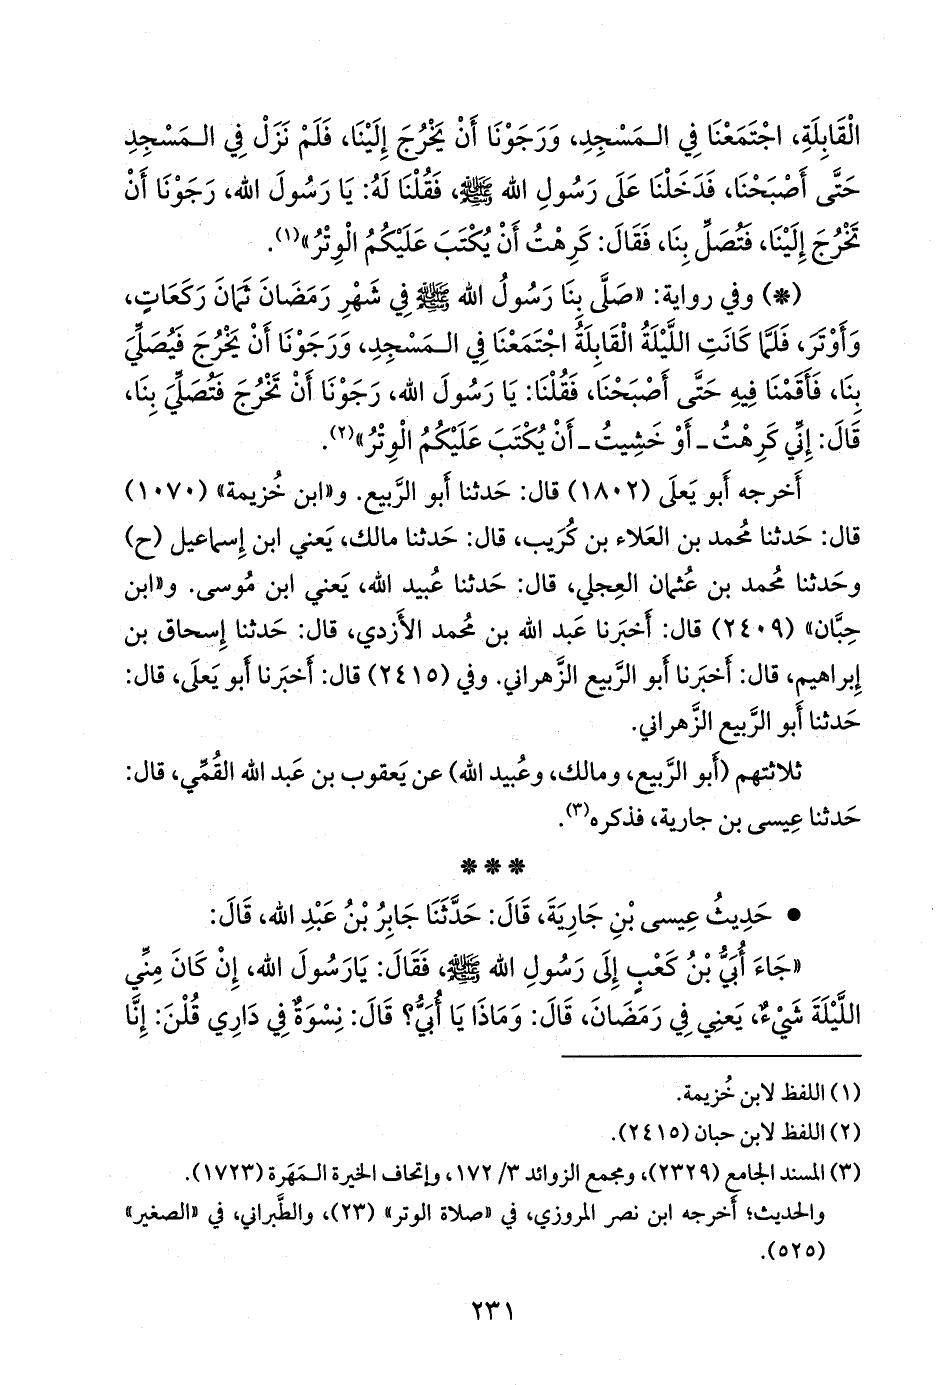 الْقَابِلَةِ، اجْتَمَعْنَا فِي الـمَسْجِدِ، وَرَجَوْنَا أَنْ يَخْرُجَ إِلَيْنَا، فَلَمْ نَزَلْ فِي الـمَسْجِدِ
حَتَّى أَصْبَحْنَا، فَدَخَلْنَا عَلَى رَسُولِ الله ﷺ، فَقُلْنَا لَهُ: يَا رَسُولَ الله، رَجَوْنَا أَنْ
تَخْرُجَ إِلَيْنَا، فَتُصَلِّ بِنَا، فَقَالَ: كَرِهْتُ أَنْ يُكْتَبَ عَلَيْكُمُ الْوِتْرُ»(١).
(*) وفي رواية: «صَلَّى بِنَا رَسُولُ الله ﷺ فِي شَهْرِ رَمَضَانَ ثَمَانَ رَكَعَاتٍ،
وَأَوْتَرَ، فَلَمَّا كَانَتِ اللَّيْلَةُ الْقَابِلَةُ اجْتَمَعْنَا فِي الـمَسْجِدِ، وَرَجَوْنَا أَنْ يَخْرُجَ فَيُصَلِّيَ
بِنَا، فَأَقَمْنَا فِيهِ حَتَّى أَصْبَحْنَا، فَقُلْنَا: يَا رَسُولَ الله، رَجَوْنَا أَنْ تَخْرُجَ فَتُصَلِّيَ بِنَا،
قَالَ: إِنِّي كَرِهْتُ ـ أَوْ خَشِيتُ ـ أَنْ يُكْتَبَ عَلَيْكُمُ الْوِتْرُ»(٢).
أَخرجه أَبو يَعلَى (١٨٠٢) قال: حَدثنا أَبو الرَّبيع. و«ابن خُزيمة» (١٠٧٠)
قال: حَدثنا مُحمد بن العَلاء بن كُرَيب، قال: حَدثنا مالك، يَعني ابن إِسماعيل (ح)
وحَدثنا مُحمد بن عُثمان العِجلي، قال: حَدثنا عُبيد الله، يَعني ابن مُوسى. و«ابن
حِبَّان» (٢٤٠٩) قال: أَخبَرنا عَبد الله بن مُحمد الأَزدي، قال: حَدثنا إِسحاق بن
إِبراهيم، قال: أَخبَرنا أَبو الرَّبيع الزَّهراني. وفي (٢٤١٥) قال: أَخبَرنا أَبو يَعلَى، قال:
حَدثنا أَبو الرَّبيع الزَّهراني.
ثلاثتهم (أَبو الرَّبيع، ومالك، وعُبيد الله) عن يَعقوب بن عَبد الله القُمِّي، قال:
حَدثنا عِيسى بن جارية، فذكره(٣).
* * *
• حَدِيثُ عِيسى بْنِ جَارِيَةَ، قَالَ: حَدَّثَنَا جَابِرُ بْنُ عَبْدِ الله، قَالَ:
«جَاءَ أُبَيُّ بْنُ كَعْبٍ إِلَى رَسُولِ الله ﷺ، فَقَالَ: يَارَسُولَ الله، إِنْ كَانَ مِنِّي
اللَّيْلَةَ شَيْءٌ، يَعنِي فِي رَمَضَانَ، قَالَ: وَمَاذَا يَا أُبَيُّ؟ قَالَ: نِسْوَةٌ فِي دَارِي قُلْنَ: إِنَّا
(١) اللفظ لابن خُزيمة.
(٢) اللفظ لابن حبان (٢٤١٥).
(٣) المسند الجامع (٢٣٢٩)، ومجمع الزوائد ٣/ ١٧٢، وإتحاف الخيرة الـمَهَرة (١٧٢٣).
والحديث؛ أَخرجه ابن نصر المروزي، في «صلاة الوتر» (٢٣)، والطَّبراني، في «الصغير»
(٥٢٥).
٢٣١